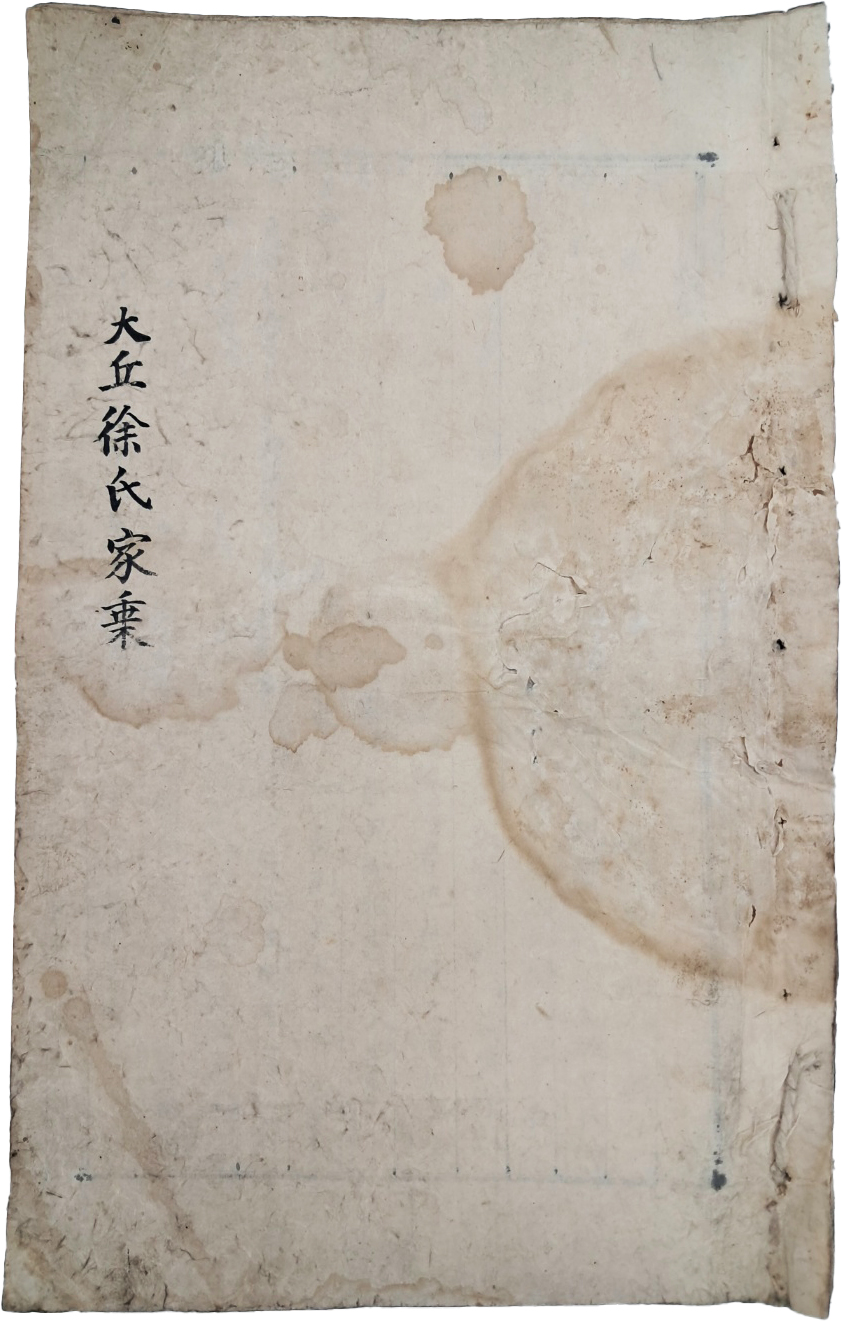 大丘徐氏家乗